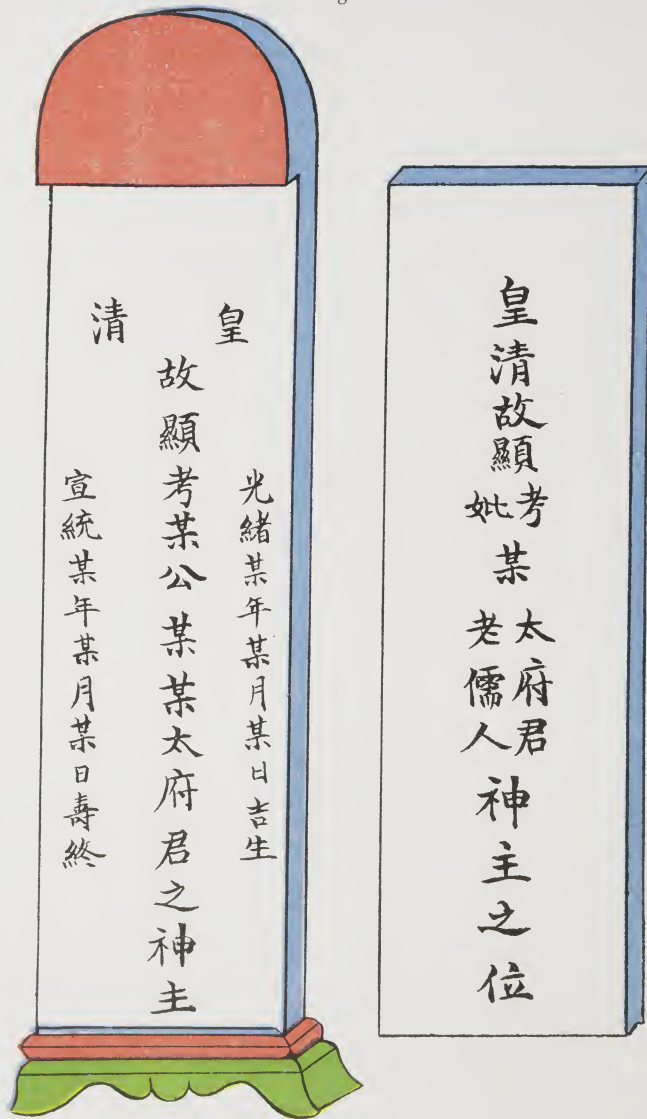 皇清
光緒某年某月某日吉生
故顯考某公某某太府君之神主
宣統某年某月某日壽終
皇清故顯
考
妣
某
太府君
老儒人
神主之位